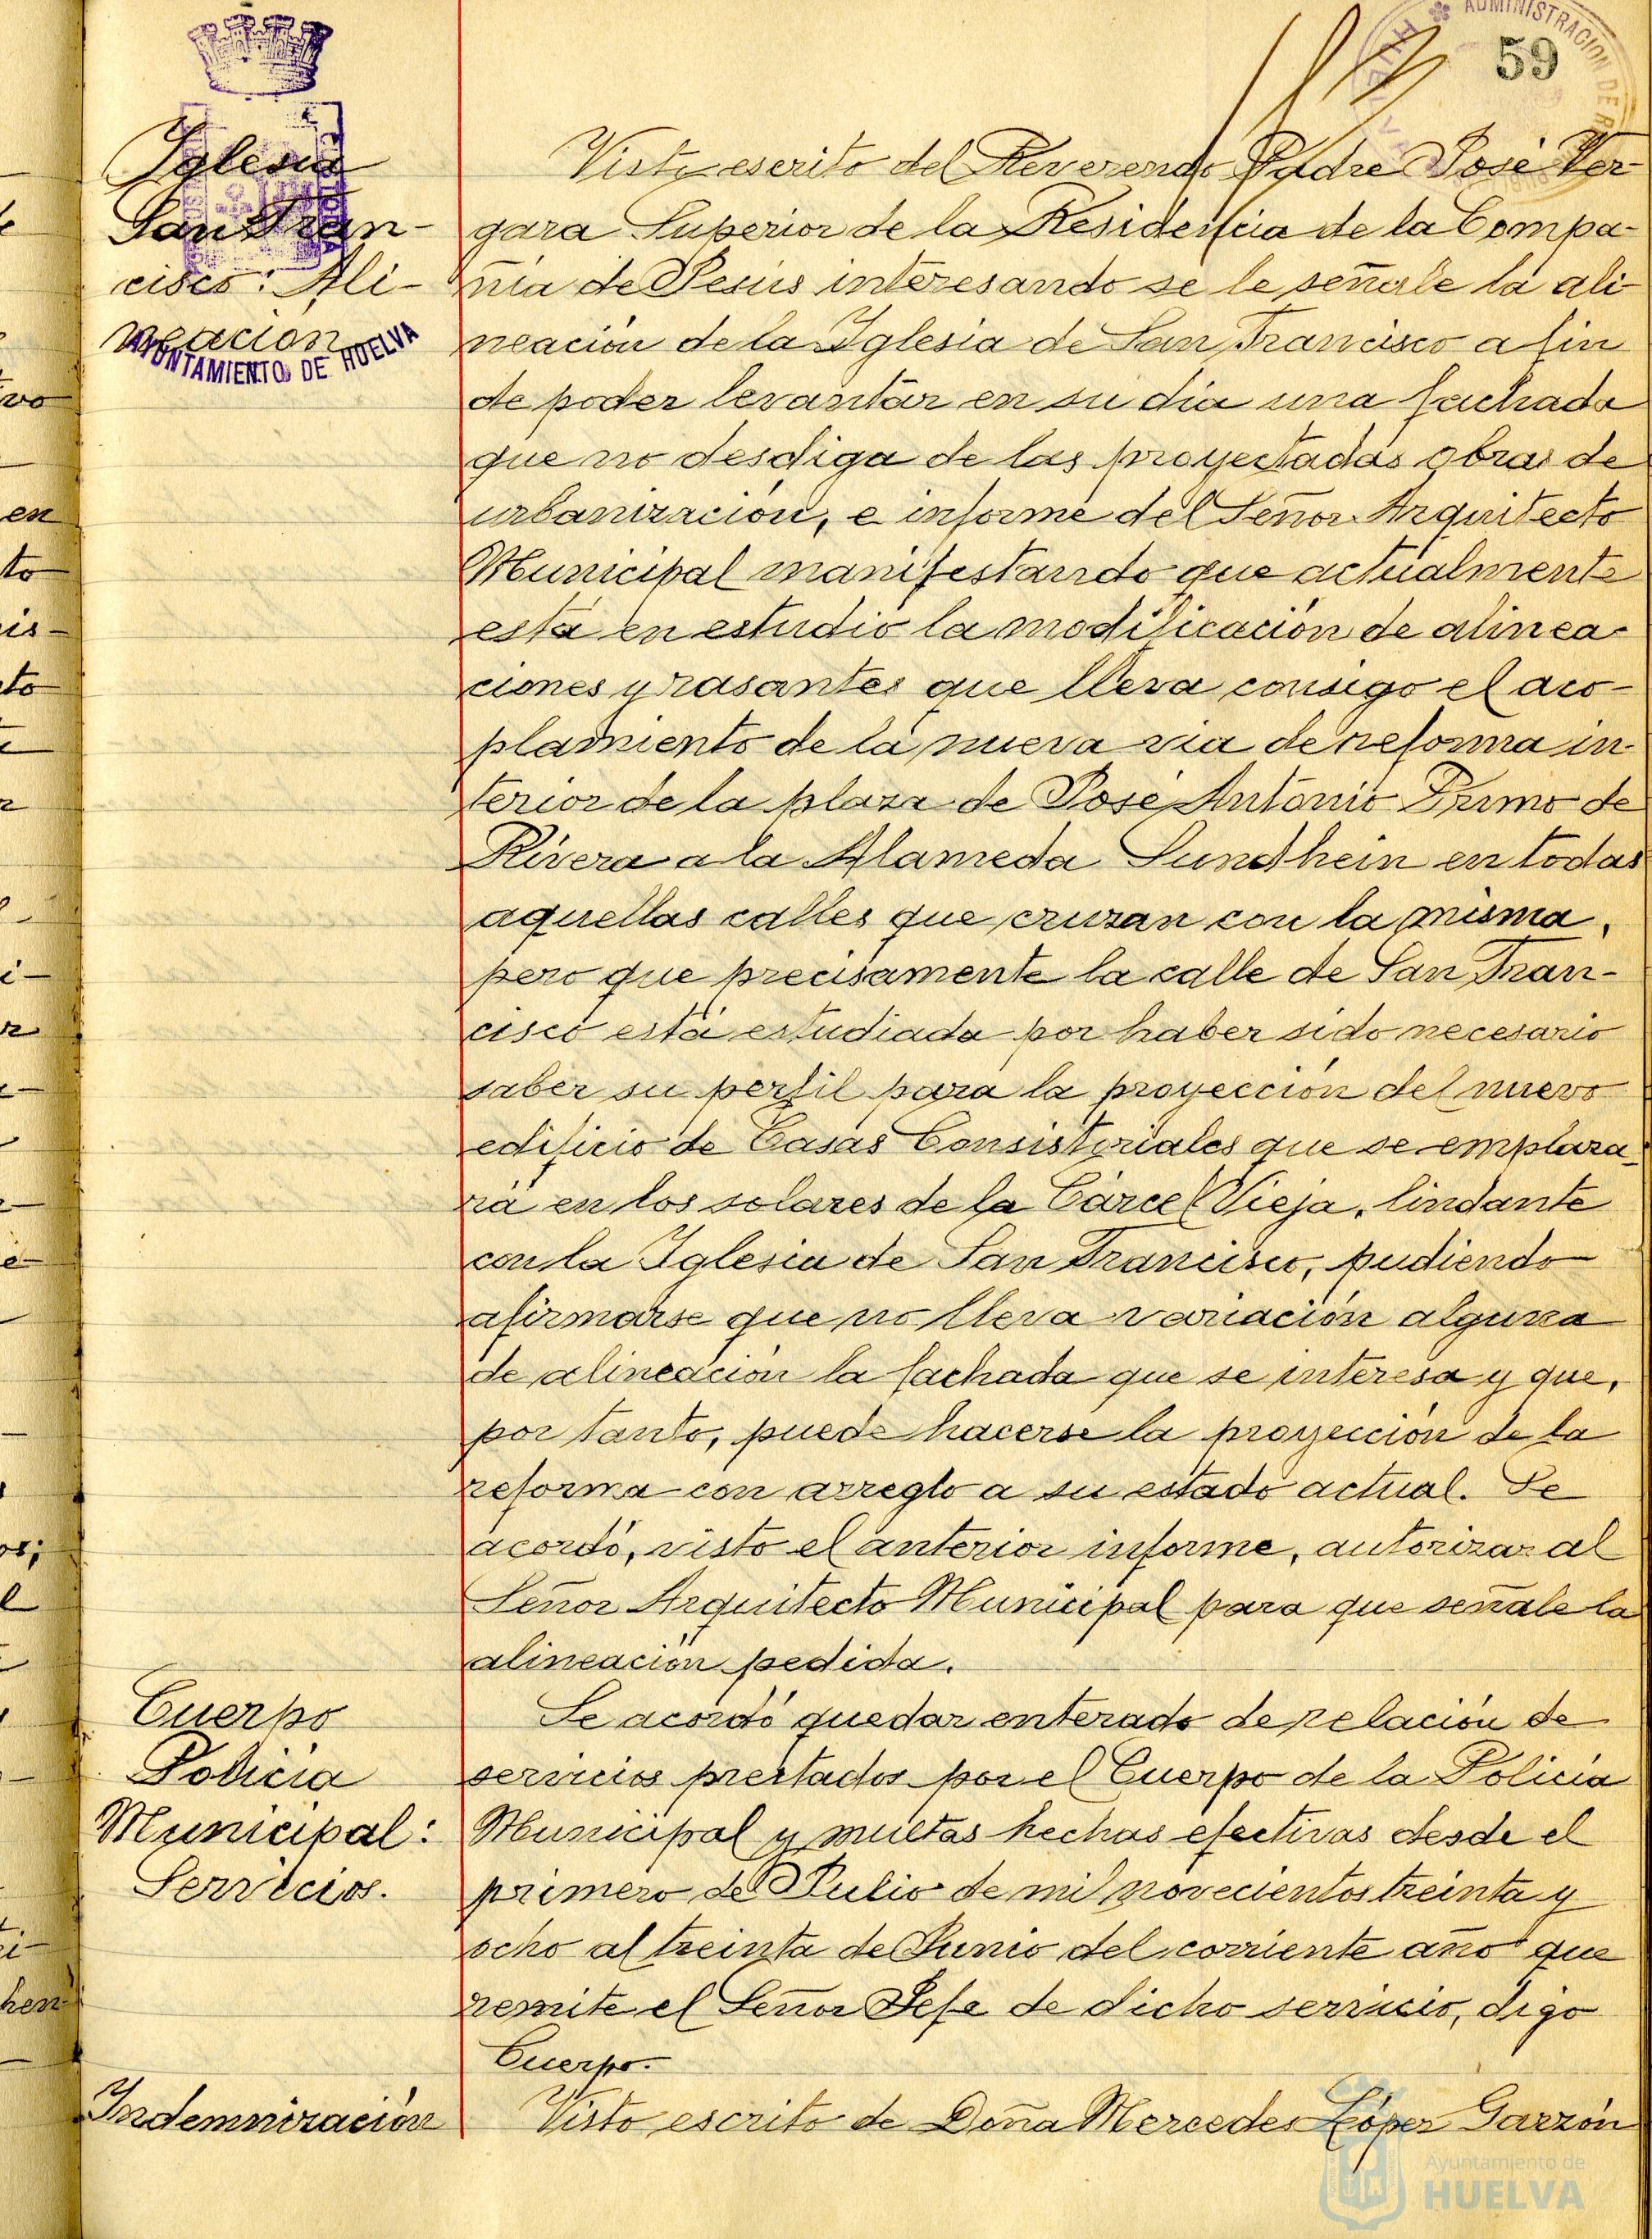 59
ADMINISTRACION DE
Iglesia
San Fran-
cisco: Ali-
neación
AYUNTAMIENTO DE HUELVA
Visto escrito del Reverendo Padre José Ver-
gara Superior de la Residencia de la Compa-
ñía de Jesús interesando se le señale la ali-
neación de la Iglesia de San Francisco a fin
de poder levantar en su día una fachada
que no desdiga de las proyectadas obras de
urbanización, e informe del Señor Arquitecto
Municipal manifestando que actualmente
está en estudio la modificación de alinea-
ciones y rasantes que lleva consigo el aco-
plamiento de la nueva vía de reforma in-
terior de la plaza de José Antonio Primo de
Rivera a la Alameda Sundhein en todas
aquellas calles que cruzan con la misma,
pero que precisamente la calle de San Fran-
cisco está estudiada por haber sido necesario
saber su perfil para la proyección del nuevo
edificio de Casas Consistoriales que se emplaza-
rá en los solares de la Cárcel Vieja, lindante
con la Iglesia de San Francisco, pudiendo
afirmarse que no lleva variación alguna
de alineación la fachada que se interesa y que,
por tanto, puede hacerse la proyección de la
reforma con arreglo a su estado actual. Se
acordó, visto el anterior informe, autorizar al
Señor Arquitecto Municipal para que señale la
alineación pedida.
Cuerpo
Policía
Municipal:
Servicios.
Se acordó quedar enterado de relación de
servicios prestados por el Cuerpo de la Policía
Municipal y multas hechas efectivas desde el
primero de Julio de mil novecientos treinta y
ocho al treinta de Junio del corriente año que
remite el Señor Jefe de dicho servicio, digo
Cuerpo.
Indemnización
Visto escrito de Doña Mercedes López Garzón
Ayuntamiento de
HUELVA